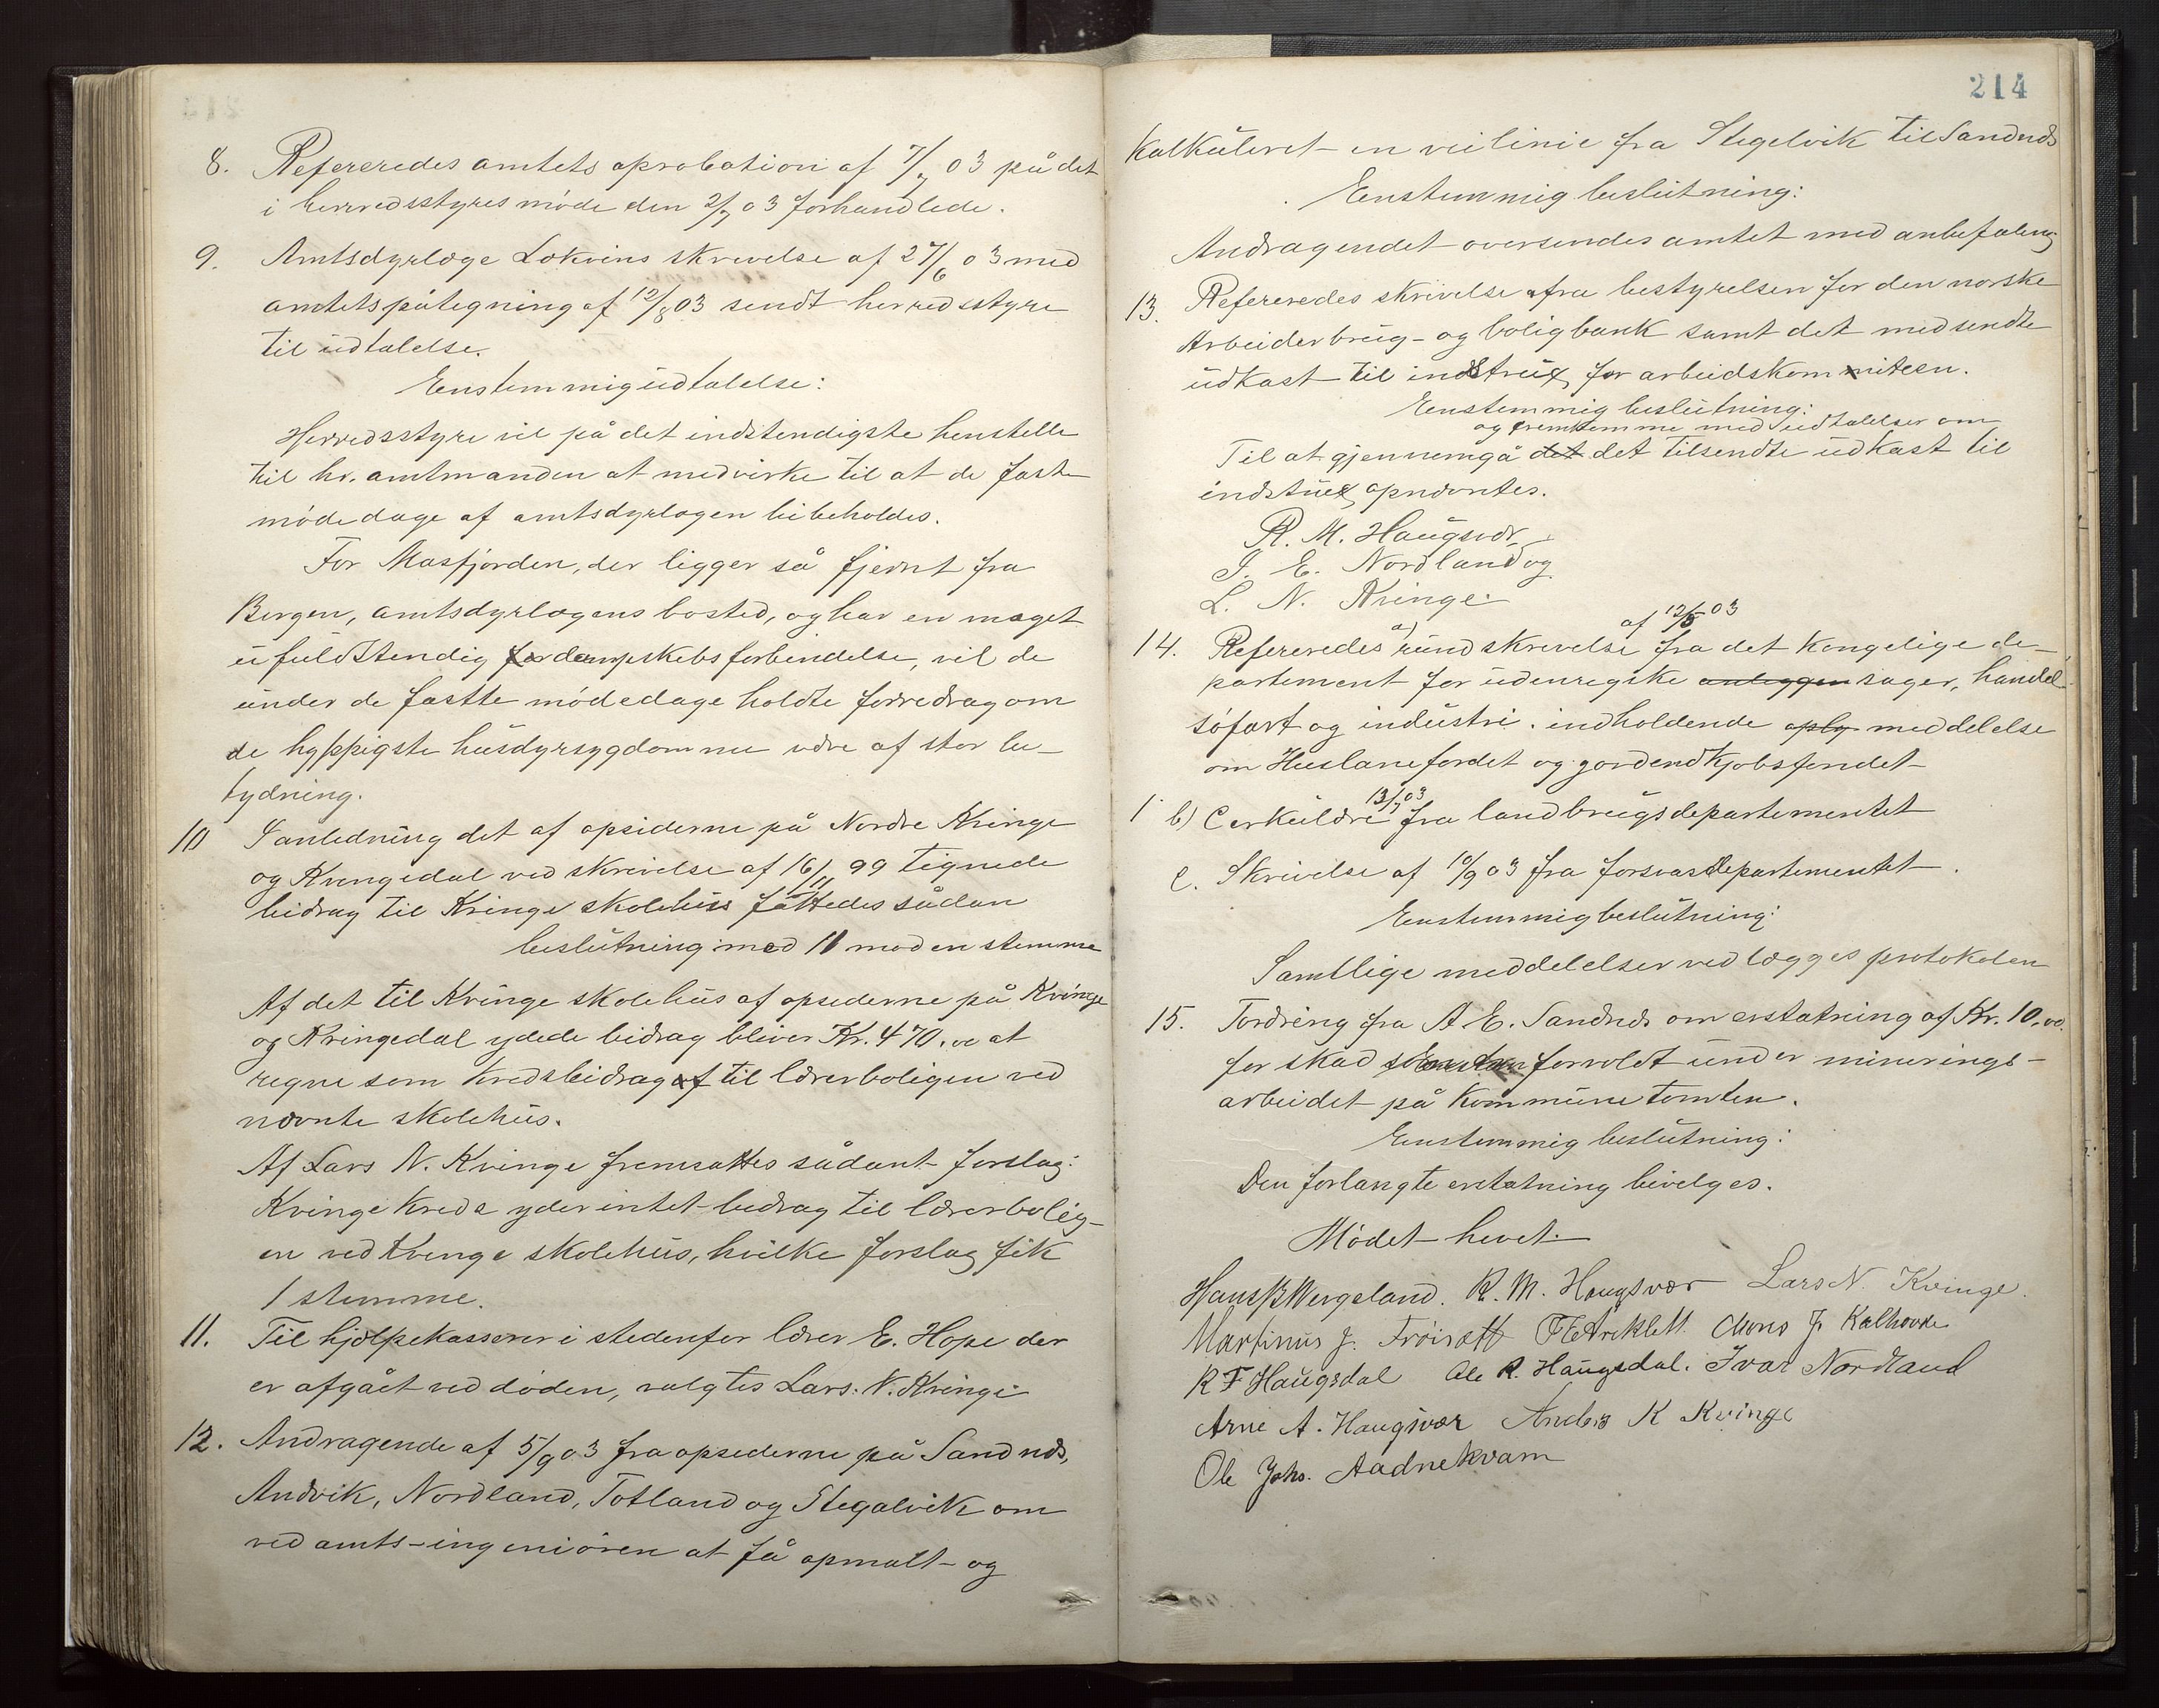 8. Refereredes amtets aprobation af 7/7 03 på det
i herredsstyres møde den 2/7 03 forhandlede.
9. Amtsdyrlæge Lokvins skrivelse af 27/6 03 med
amtets påtegning af 12/8 03 sendt herredsstyre
til udtalelse.
Enstemmig udtalelse:
Herredsstyre vil på det indstendigste henstelle
til hr. amtmanden at medvirke til at de faste
mödedage af amtsdyrlægen bibeholdes.
For Masfjorden, der ligger så fjernt fra
Bergen, amtsdyrlægens bosted, og har en meget
ufuldstendig dampskibsforbindelse, vil de
under de fastte mödedage holdte forredrag om
de hyppigste husdyrsygdomme være af stor be-
tydning.
10 I anledning det af opsiderne på Nordre Kvinge
og Kvingedal ved skrivelse af 16/11 99 tegnede
bidrag til Kvinge skolehus fattedes sådan
beslutning med 11 mod en stemme
Af det til Kvinge skolehus af opsederne på Kvinge
og Kvingedal ydede bidrag bliver Kr. 470.oo at
regne som kredsbidrag til lærerboligen ved
nævnte skolehus.
Af Lars N. Kvinge fremsattes sådant forslag:
Kvinge kreds yder intet bedrag til lærerbolig-
en ved Kvinge skolehus, hvilke forslag fik
1 stemme.
11. Til hjælpekasserer i stedenfor lærer E. Hope der
er afgået ved döden, valgtes Lars. N. Kvinge
12. Andragende af 5/9 03 fra opsederne på Sandnæs,
Andvik, Nordland, Totland og Stegalvik om
ved amts-ingeniören at få opmalt og
214
Kalkuleret en veilinie fra Stegelvik til Sandnæs
Enstemmig beslutning:
Andragendet oversendes amtet med anbefaling
13. Refereredes skrivelse fra bestyrelsen for den norske
Arbeiderbrug- og boligbank samt det medsendte
udkast til indstrux for arbeidskommiteen.
Enstemmig beslutning:
og fremkomme med udtalelser om
Til at gjennemgå det det tilsendte udkast til
indstux opnævntes.
R. M. Haugsvær,
I. E. Nordland og
L. N. Kvinge.
af 12/5 03
14. Refereredes a) rundskrivelse fra det kongelige de-
partement for udenrigske anliggen sager, handel
söfart og industri. indholdende oply meddelelse
om Huslånefondet og jordindkjøbsfondet
13/7 03
b) Cerkulære fra landbrugsdepartementet
c. Skrivelse af 10/9 03 fra forsvarsdepartementet
Enstemmig beslutning:
Samtlige meddelelser vedlægges protokolen
15. Fordring fra A E. Sandnæs om erstatning af Kr. 10.oo.
for skad forvoldt under minerings-
arbeidet på kommunetomten.
Enstemmig beslutning:
Den forlangte erstatning bivilges.
Mödet hevet.
Hans B Wergeland. R. M. Haugsvær Lars N. Kvinge.
Martinus J. Frøisett Mons J. Kalhovde
R F Haugsdal Ole R. Haugsdal. Ivar Nordland
Arne A. Haugsvær Anders K Kvinge
Ole Johs. Aadnekvam